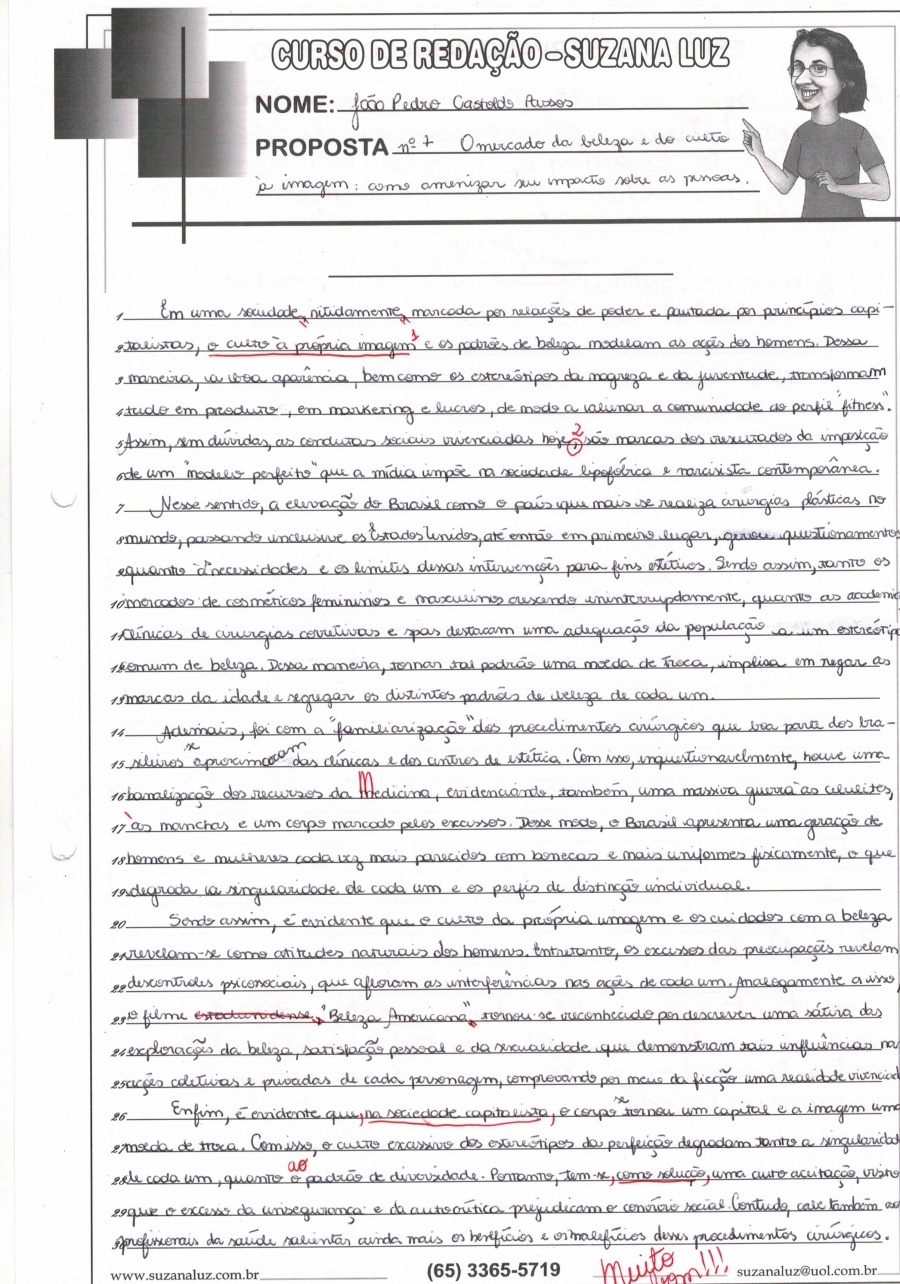 CURSO DE REDAÇÃO - SUZANA LUZ
NOME: João Pedro Castoldo
PROPOSTA nº 7 O mercado da beleza e do culto
à imagem: como amenizar seu impacto sobre as pessoas.
1 Em uma sociedade, nitidamente, marcada por relações de poder e pautada por princípios capi-
2 talistas, o culto à própria imagem 1 e os padrões de beleza modelam as ações dos homens. Dessa
3 maneira, a boa aparência, bem como os estereótipos da magreza e da juventude, transformam
4 tudo em produto, em marketing e lucros, de modo a alienar a comunidade ao perfil "fitness".
5 Assim, sem dúvidas, as condutas sociais vivenciadas hoje, 2 são marcas dos resultados da imposição
6 de um "modelo perfeito" que a mídia impõe na sociedade lipofóbica e narcisista contemporânea.
7 Nesse sentido, a elevação do Brasil como o país que mais se realiza cirurgias plásticas no
8 mundo, passando inclusive os Estados Unidos, até então em primeiro lugar, gerou questionamentos
9 quanto à necessidades e os limites dessas intervenções para fins estéticos. Sendo assim, tanto os
10 mercados de cosméticos femininos e masculinos crescendo ininterruptamente, quanto as academi
11 clínicas de cirurgias corretivas e spas destacam uma adequação da população a um estereótipo
12 comum de beleza. Dessa maneira, tornar tal padrão uma moeda de troca, implica em negar as
13 marcas da idade e segregar os distintos padrões de beleza de cada um.
14 Ademais, foi com a "familiarização" dos procedimentos cirúrgicos que boa parte dos bra-
15 sileiros se aproximaram das clínicas e dos centros de estética. Com isso, inquestionavelmente, houve uma
16 banalização dos recursos da Medicina, evidenciando, também, uma massiva guerra às celulites,
17 às manchas e um corpo marcado pelos excessos. Desse modo, o Brasil apresenta uma geração de
18 homens e mulheres cada vez mais parecidos com bonecas e mais uniformes fisicamente, o que
19 degrada a singularidade de cada um e os perfis de distinção individual.
20 Sendo assim, é evidente que o culto da própria imagem e os cuidados com a beleza
21 revelam-se como atitudes naturais dos homens. Entretanto, os excessos das preocupações revelam
22 descontroles psicossociais, que afloram as interferências nas ações de cada um. Analogamente a isso,
23 o filme estadunidense, "Beleza Americana", tornou-se reconhecido por descrever uma sátira das
24 explorações da beleza, satisfação pessoal e da sexualidade que demonstram tais influências na
25 ações coletivas e privadas de cada personagem, comprovando por meio da ficção uma realidade vivenciad
26 Enfim, é evidente que, na sociedade capitalista, o corpo se tornou um capital e a imagem uma
27 moeda de troca. Com isso, o culto excessivo dos estereótipos da perfeição degradam tanto a singularidad
28 de cada um, quanto ao padrão de diversidade. Portanto, tem-se, como solução, uma auto aceitação, visto
29 que o excesso da insegurança e da autocrítica prejudicam o convívio social. Contudo, cabe também ao
30 profissionais da saúde salientar ainda mais os benefícios e os malefícios desses procedimentos cirúrgicos.
Muito bom!!!
www.suzanaluz.com.br (65) 3365-5719 suzanaluz@uol.com.br